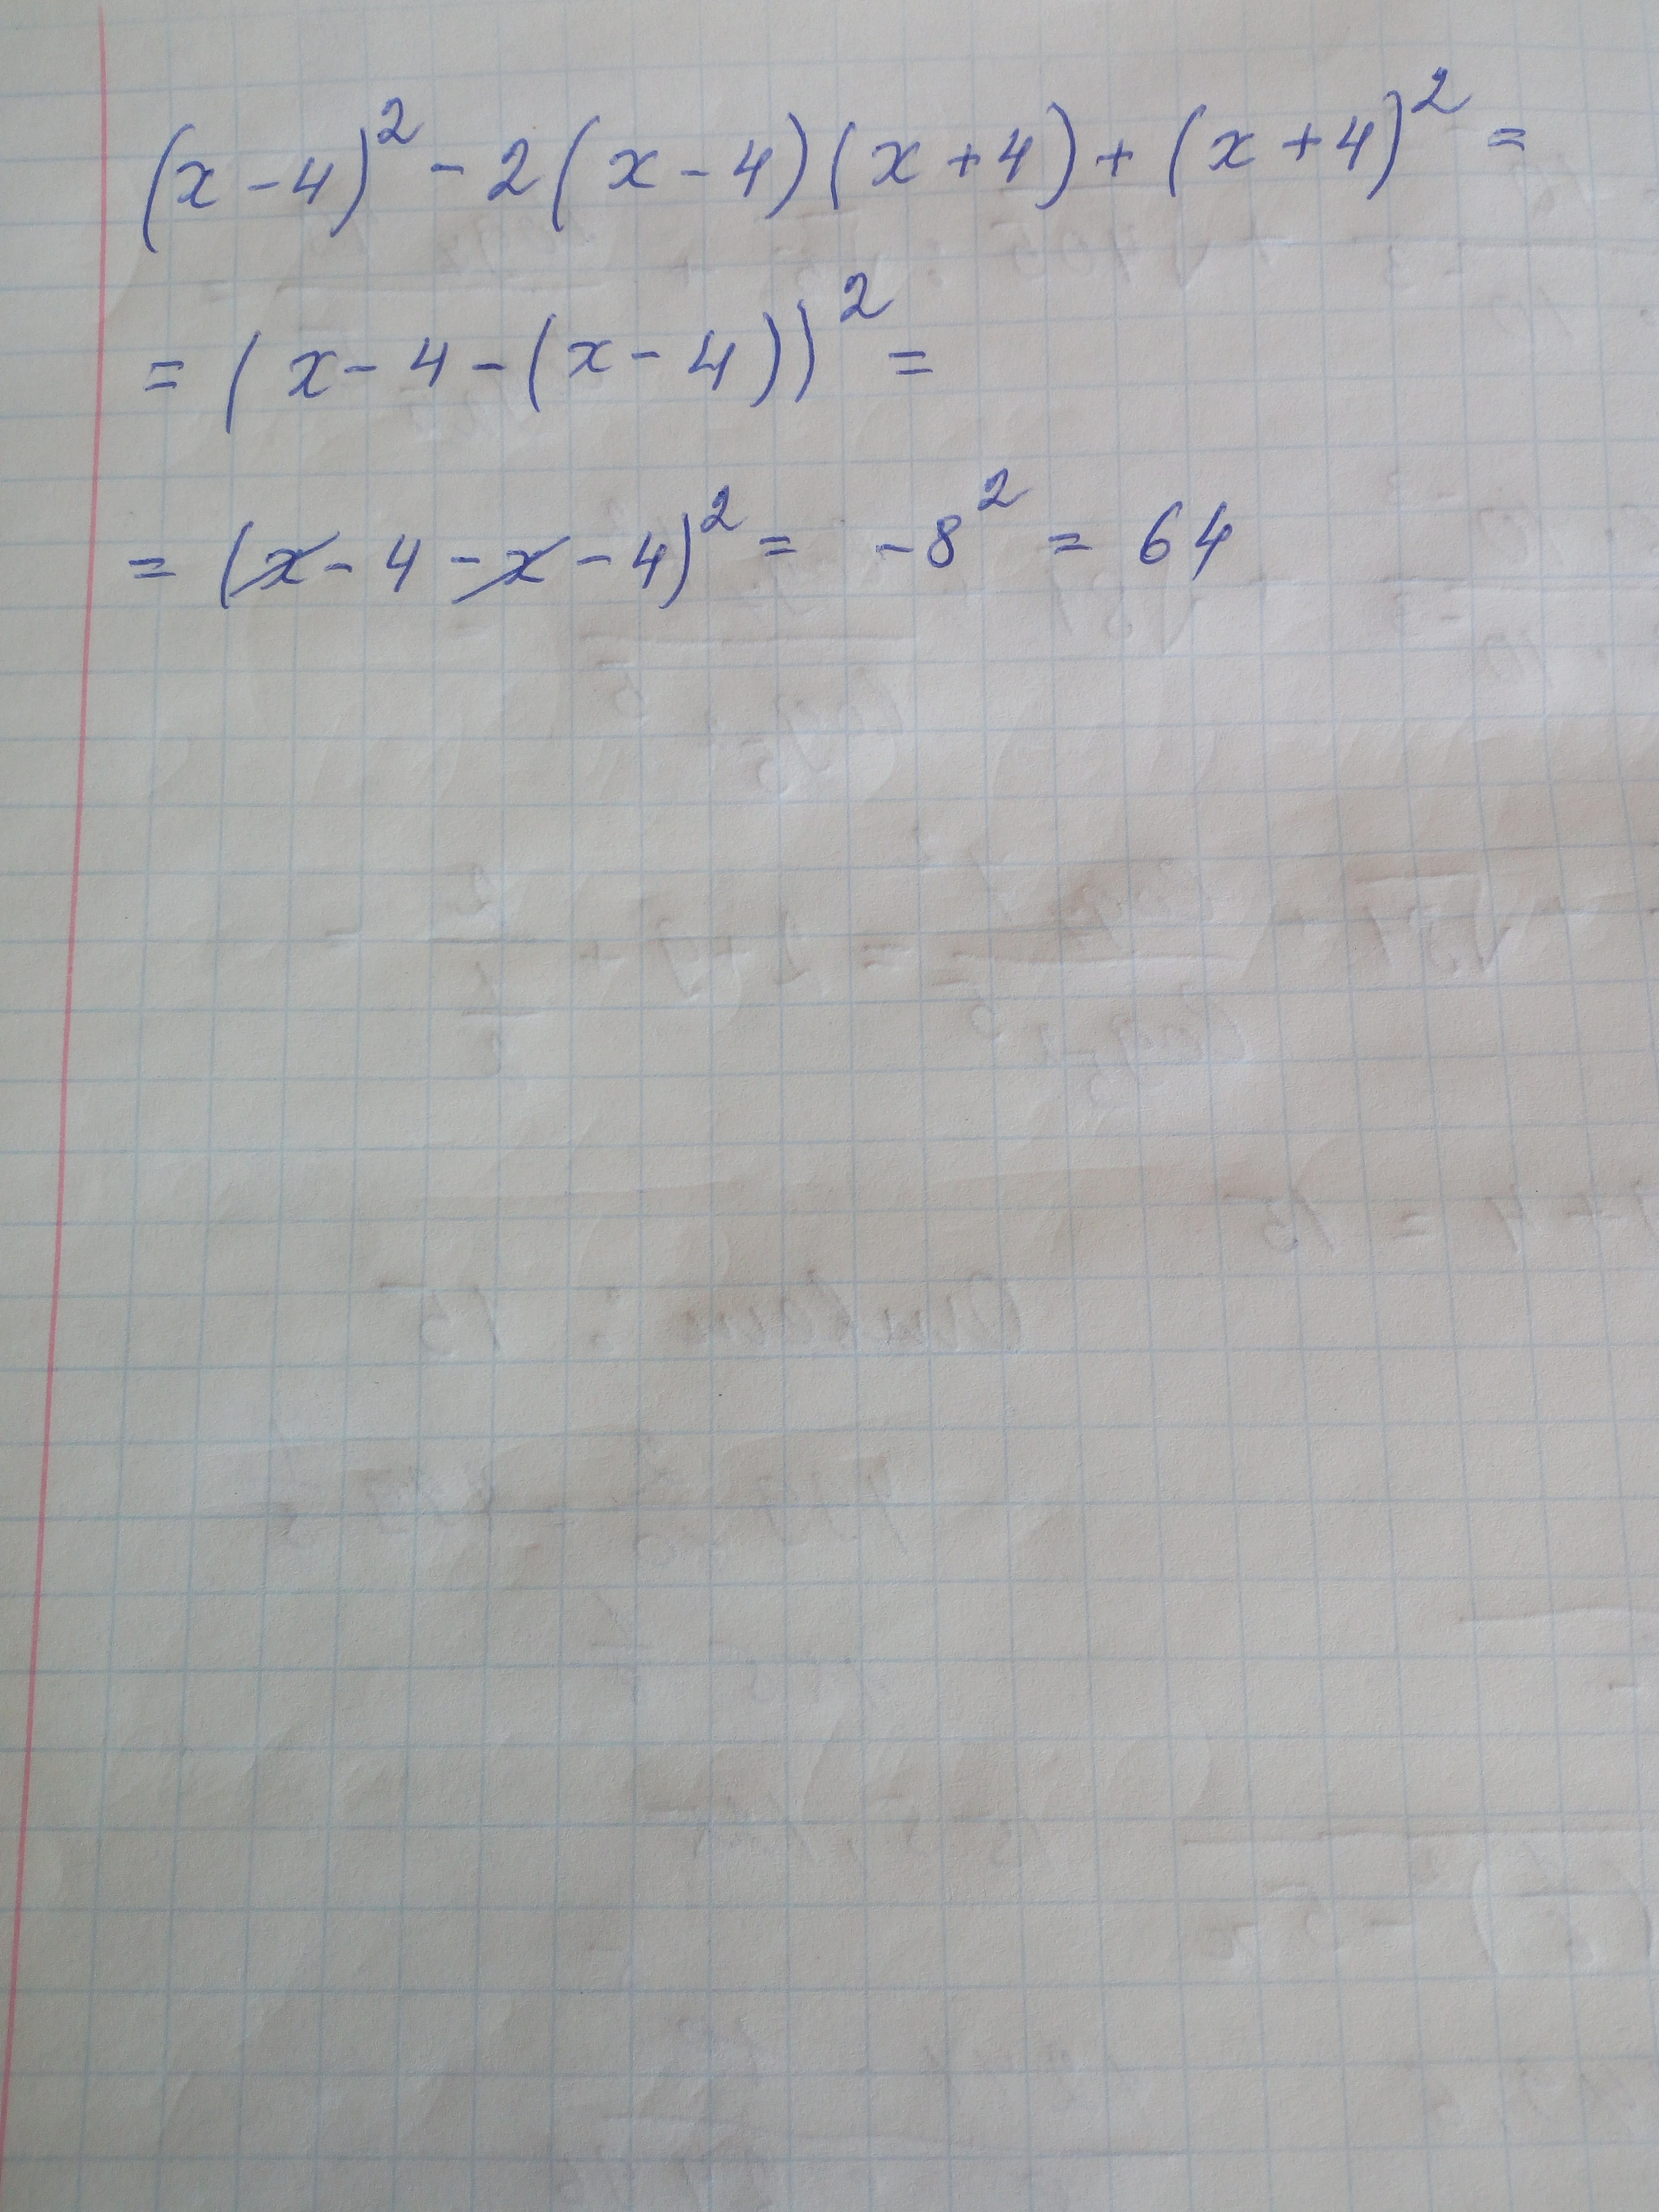 (x-4)² - 2(x-4)(x+4) + (x+4)² =
= (x-4-(x-4))² =
= (x-4-x-4)² = -8² = 64